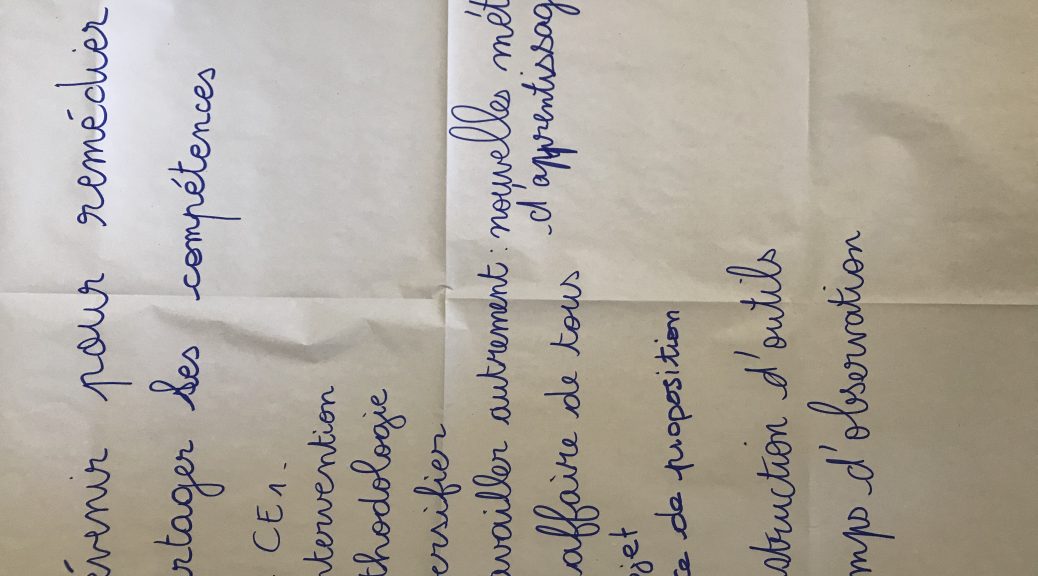 évenir pour remédier
rtager ses compétences
CE1.
ntervention
thodologie
ersifier
availler autrement : nouvelles mét
d'apprentissag
affaire de tous
jet
ce de proposition
struction d'outils
mps d'observation